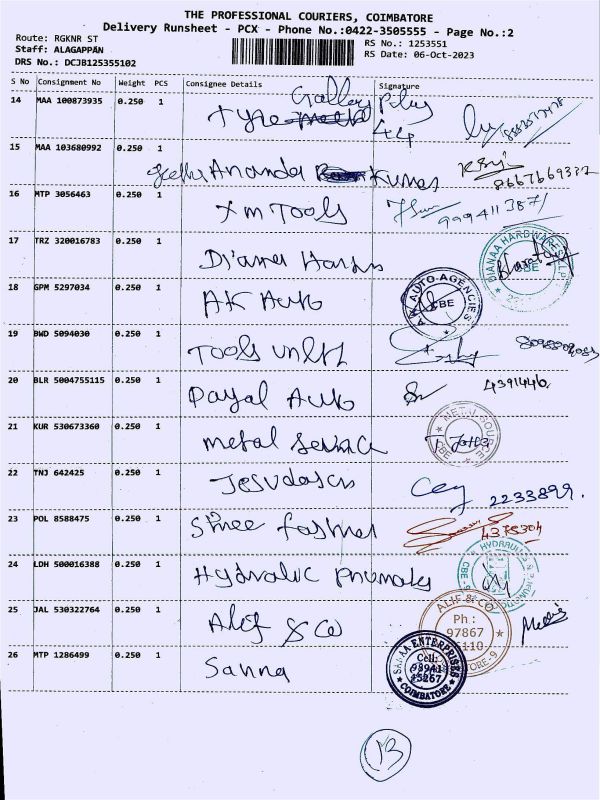 THE PROFESSIONAL COURIERS, COIMBATORE
Delivery Runsheet - PCX - Phone No.:0422-3505555 - Page No.:2
Route: RGKNR ST
Staff: ALAGAPPAN
DRS No.: DCJB125355102
RS No.: 1253551
RS Date: 06-Oct-2023
S No Consignment No Weight PCS Consignee Details Signature
14 MAA 100873935 0.250 1 Tyre Gallery
15 MAA 103680992 0.250 1 Ananda Kumar 8667669332
16 MTP 3056463 0.250 1 Tools
17 TRZ 320016783 0.250 1 DIANAA HARDWARE CBE
18 GPM 5297034 0.250 1 AK Auto A.K. AUTO AGENCIES CBE
19 BWD 5094030 0.250 1 Tools
20 BLR 5004755115 0.250 1 Payal Auto 4391446
21 KUR 530673360 0.250 1 metal METAL SOURCE CBE
22 TNJ 642425 0.250 1 Jesudason 2233899.
23 POL 8588475 0.250 1 Shree
24 LDH 500016388 0.250 1 Hydralic HYDRAULICS CBE
25 JAL 530322764 0.250 1 Alif & Co ALIF & CO Ph : 97867
26 MTP 1286499 0.250 1 Sanna ENTERPRISES Cell: COIMBATORE
13